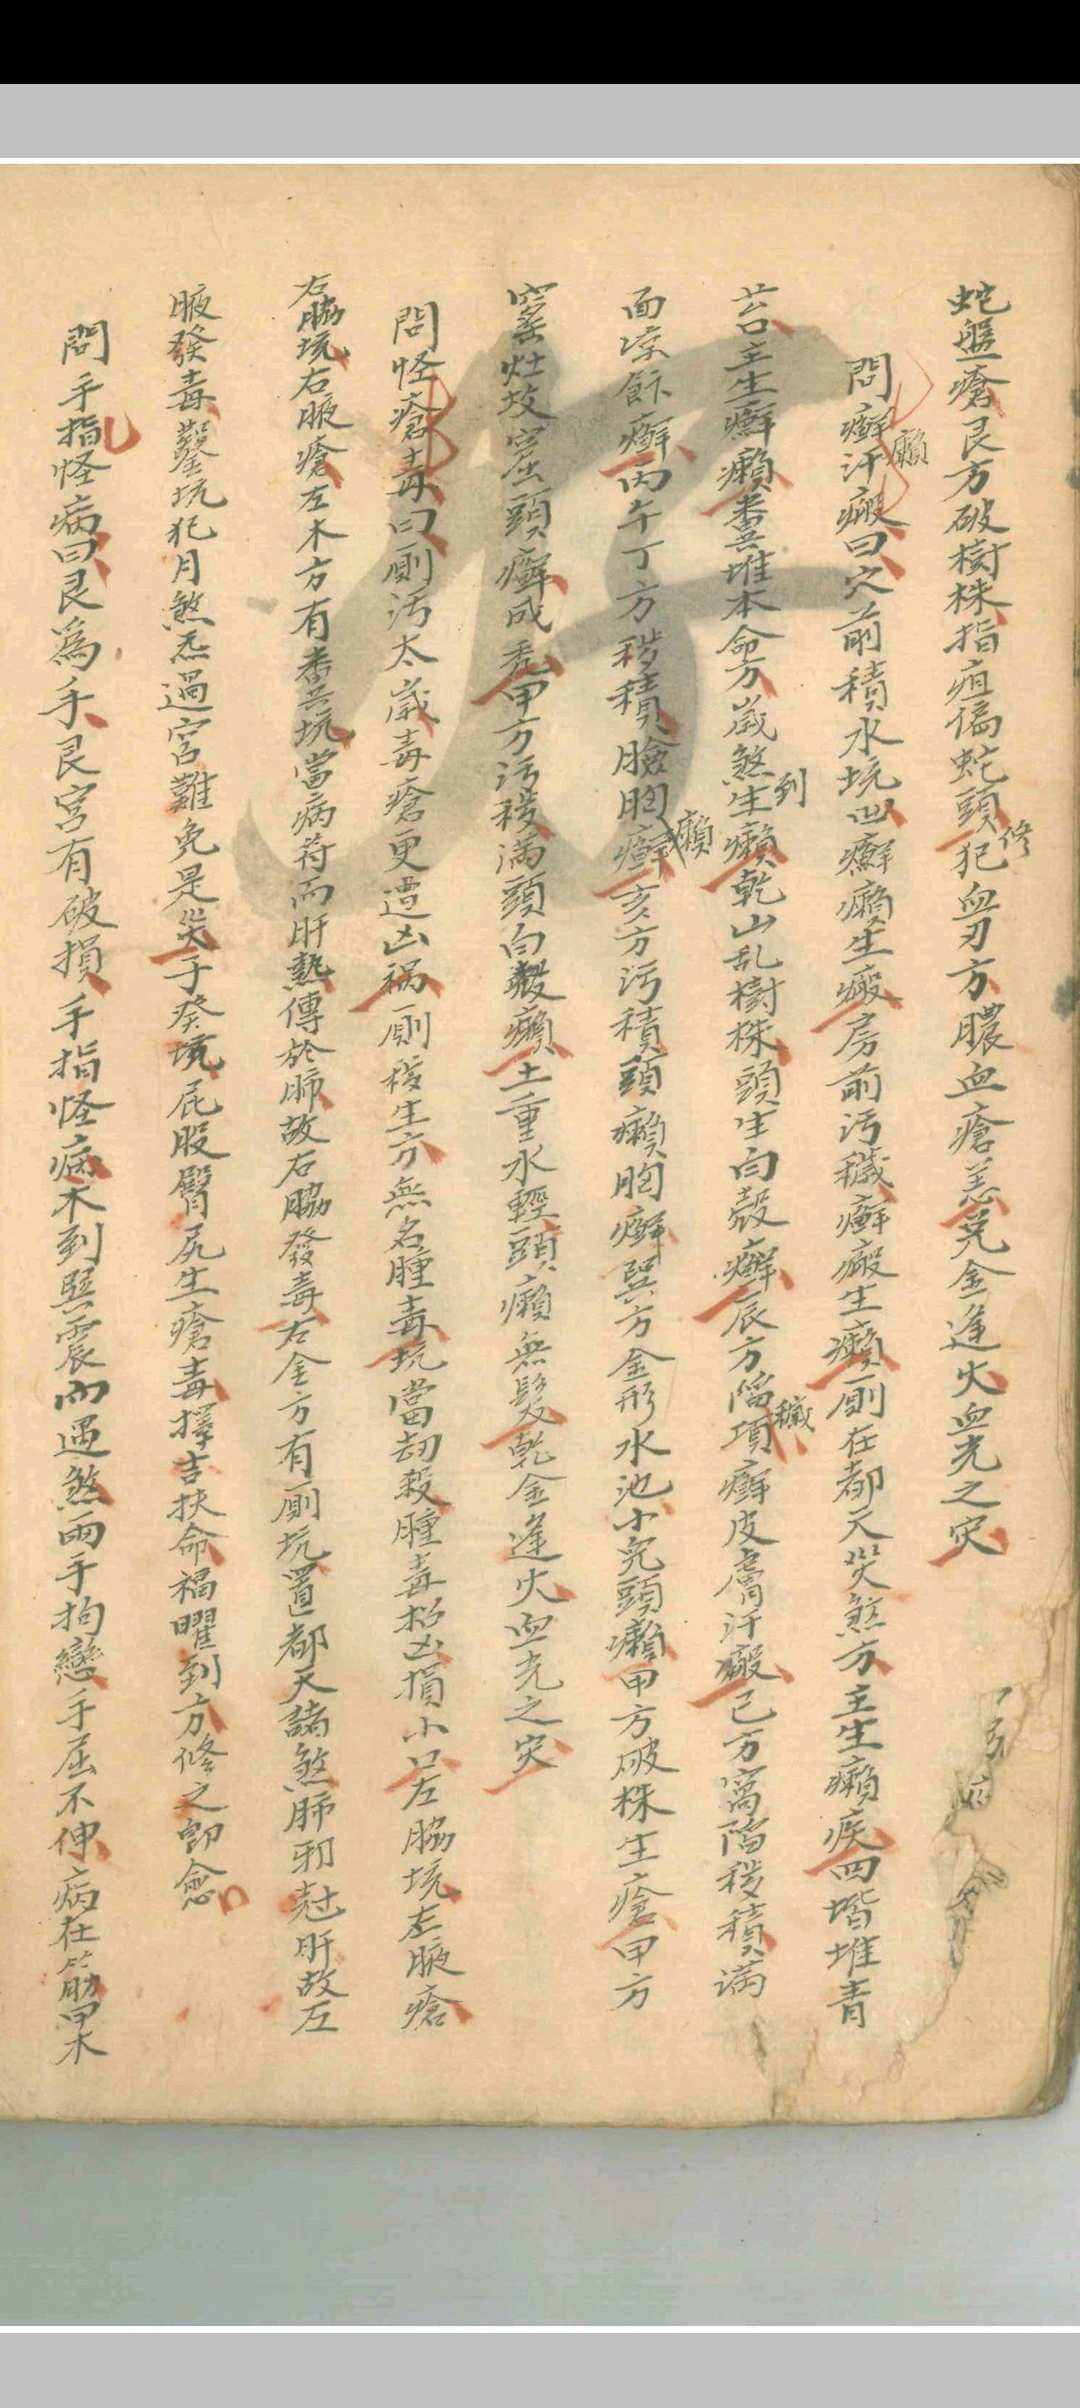 蛇盤瘡艮方破樹株指疽傷蛇頭犯修血刃方膿血瘡羔兌金逢火血光之灾
問癬癩汗瘢曰穴前積水坑凶癬癩生瘢房前污穢癬瘢生癩厠在都天災煞方主生癩疾四堦堆青
苔主生癬癩糞堆本命方歲煞到生癩乾山乱樹株頭生白殼癬辰方陷穢項癬皮膚汗瘢己方窩陷穢積滿
面凉餘癬丙午丁方穢積臉胸癬癩亥方污積頭癩胸癬巽方金形水池小兒頭癩甲方破株生瘡甲方
窰灶坟窟頭癬成禿甲方污穢滿頭白殼癩土重水輕頭癩無髮乾金逢火血光之灾
問怪瘡毒曰厠污太歲毒瘡更遭凶禍厠穢生方無名腫毒坑當劫殺腫毒招凶損小口左脇坑左腋瘡
右脇坑右腋瘡左木方有糞坑當病符而肝熱傳於肺故右脇發毒右金方有厠坑置都天諸煞肺邪尅肝故左
腋發毒鑿坑犯月煞炁過宮難免是災子癸坑屁股臂尻生瘡毒擇吉扶命福曜到方修之卽愈
問手指怪病曰艮爲手艮宮有破損手指怪病木到巽震而遇煞兩手拘攣手屈不伸病在筋甲木